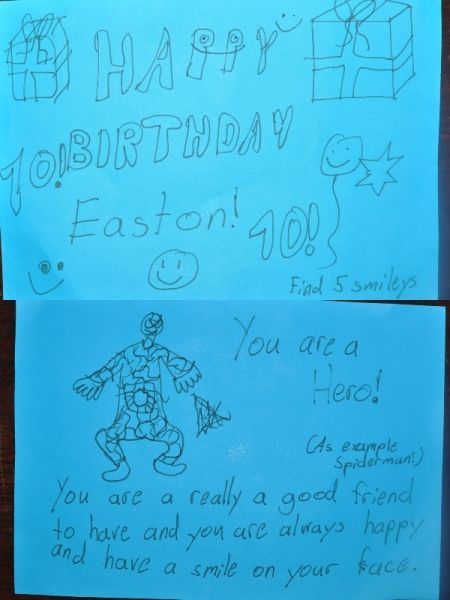 HAPPY
BIRTHDAY
10!
Easton!
10!
Find 5 smileys
You are a
Hero!
(As example
Spiderman!)
You are a really a good friend
to have and you are always happy
and have a smile on your face.